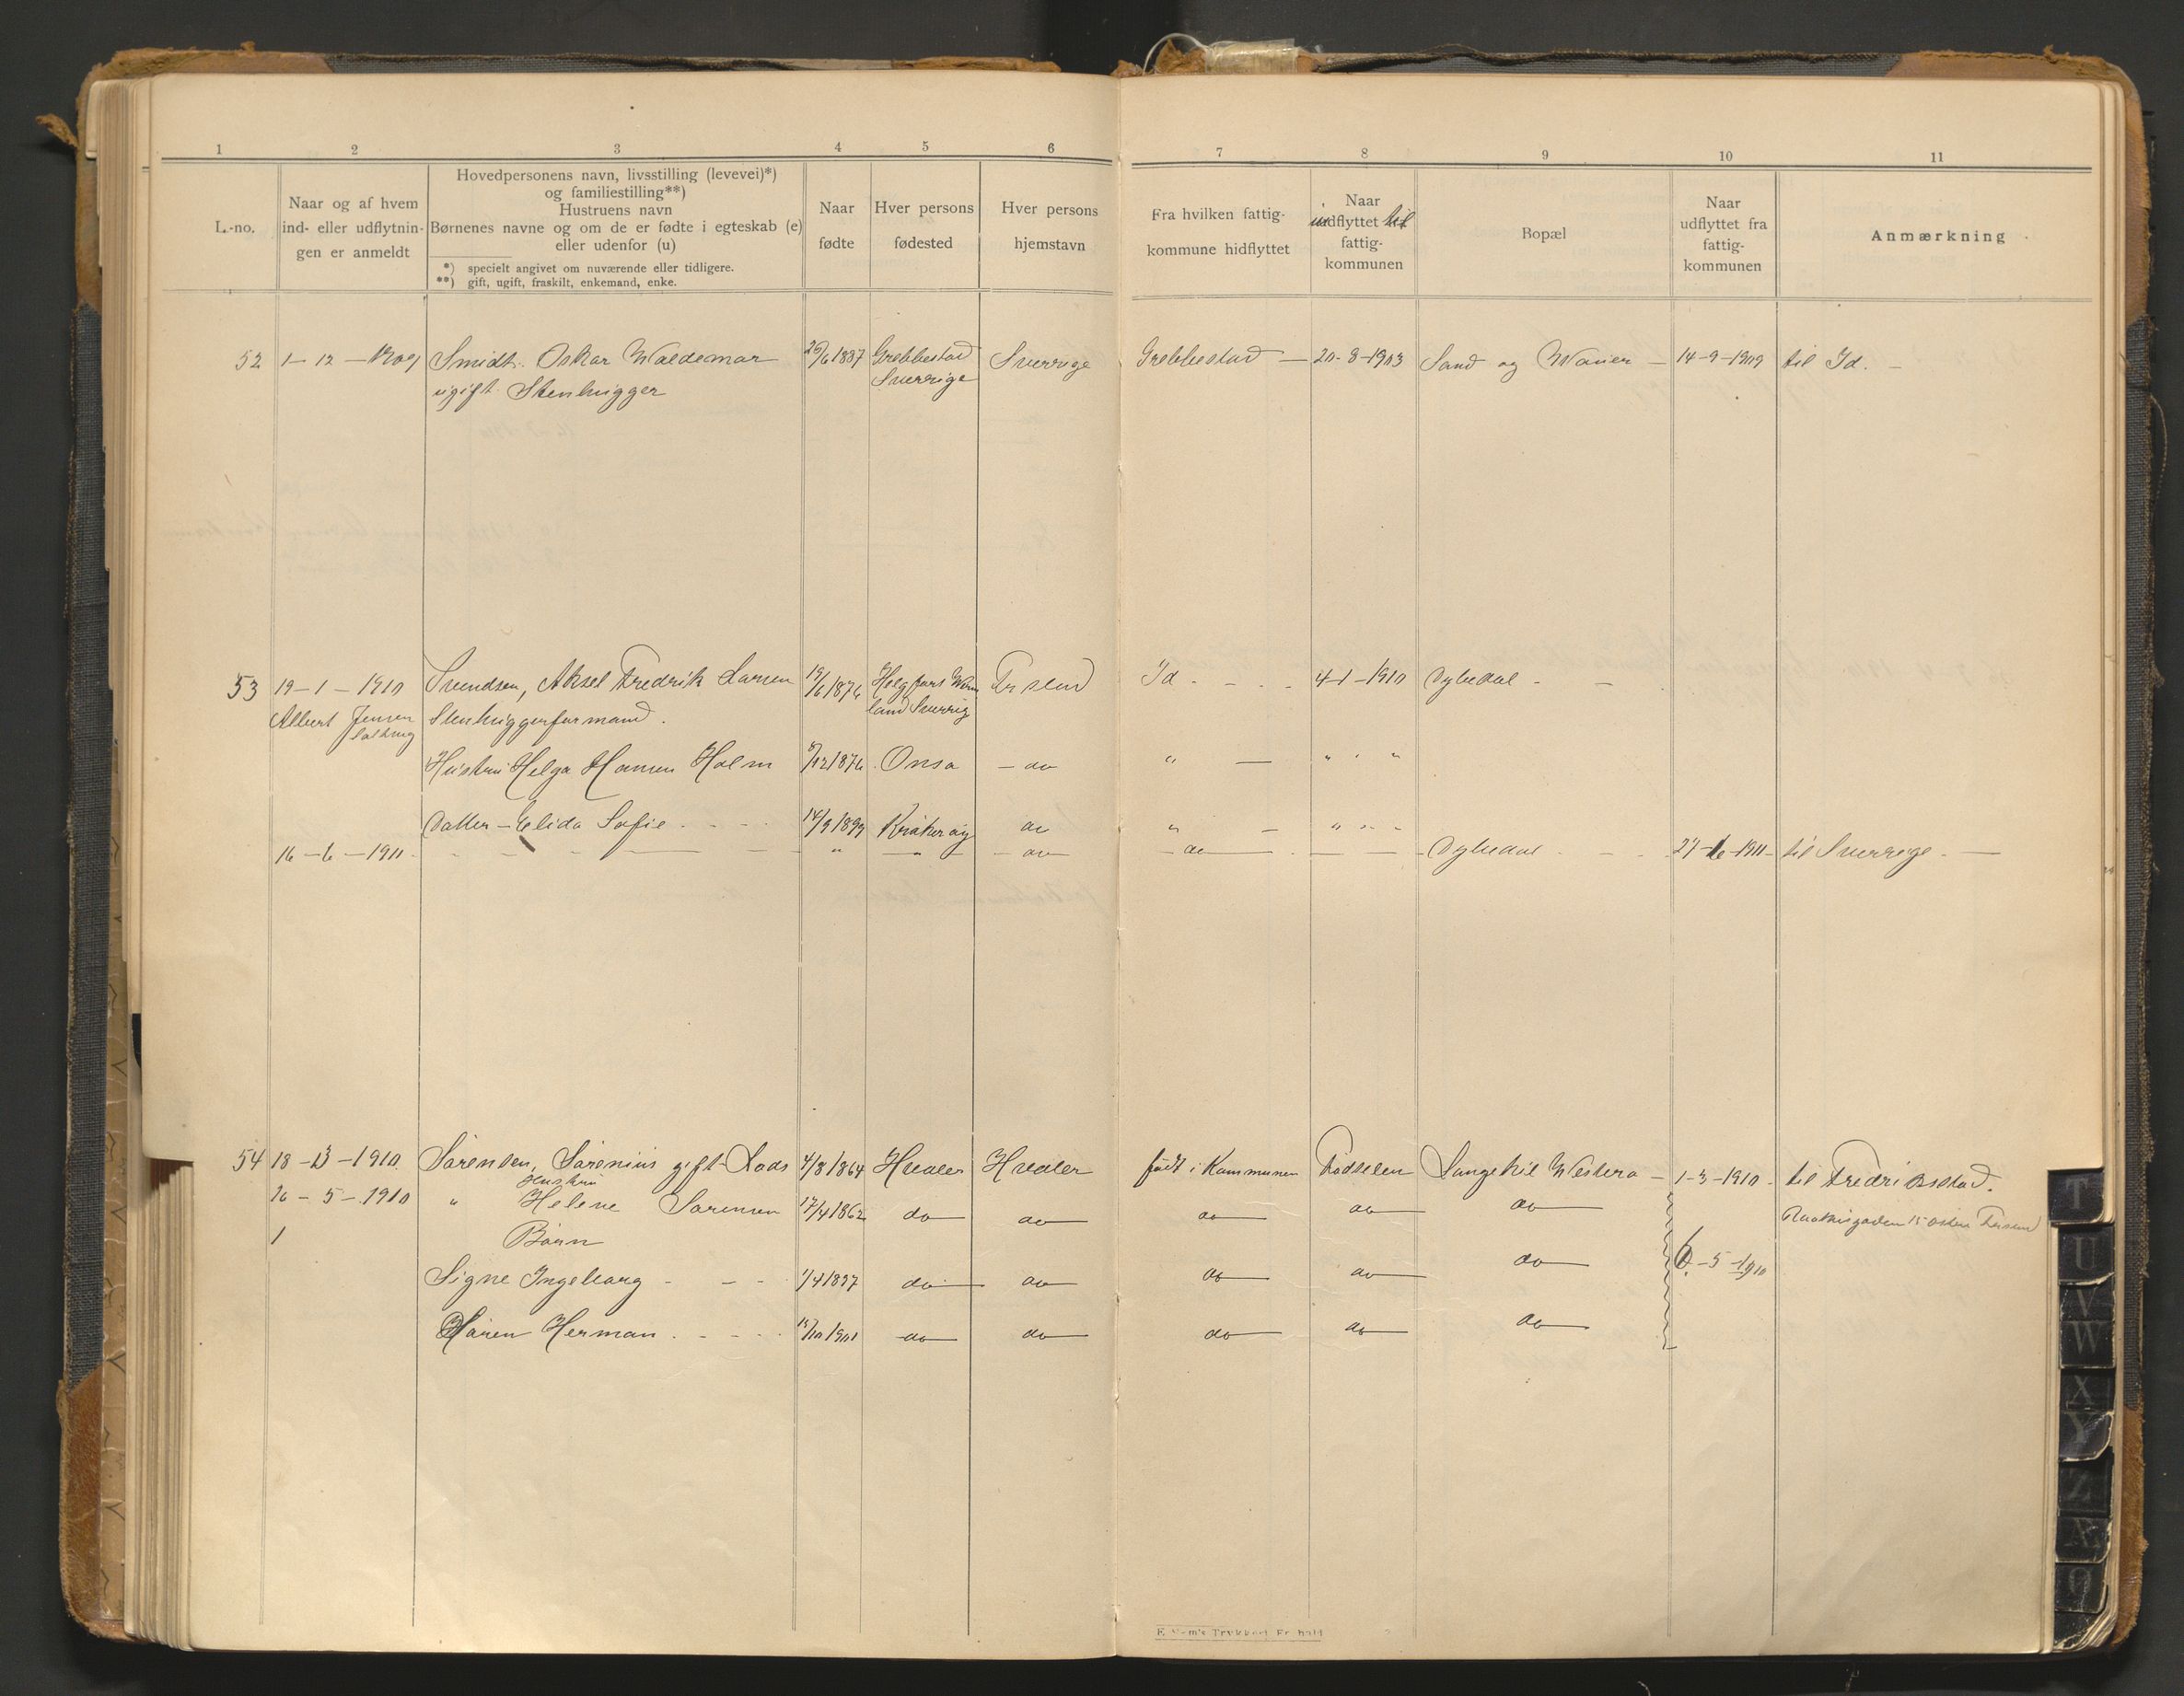 1 2 3 4 5 6 7 8 9 10 11
L.-no.
Naar og af hvem
ind- eller udflytnin-
gen er anmeldt
Hovedpersonens navn, livsstilling (levevei)*)
og familiestilling**)
Hustruens navn
Børnenes navne og om de er fødte i egteskab (e)
eller udenfor (u)
*) specielt angivet om nuværende eller tidligere.
**) gift, ugift, fraskilt, enkemand, enke.
Naar
fødte
Hver persons
fødested
Hver persons
hjemstavn
Fra hvilken fattig-
kommune hidflyttet
Naar
indflyttet til
fattig-
kommunen
Bopæl
Naar
udflyttet fra
fattig-
kommunen
Anmærkning
52 1-12-1909 Smidt. Oskar Waldemar 26/6 1887 Grebbestad Sverrige Grebbestad — 20-8-1903 Sand og — 14-9-1909 til Id. —
ugift. Stenhugger Sverrige
53 19-1-1910 Svendsen, Aksel Fredrik Larsen 19/6 1876 Fr stad Id - - - 4-1-1910 Dybedal - -
Albert Jensen Stenhuggerformand. land Sverrig
Hustru Helga Hansen Holm /12 1876 Onsø - do " — " " "
Datter - Elida Sofie - - - 14/9 1899 Kråkerøy do " - " - -
16-6-1911 - - - - " - " - - do - - do - - Dybedal - - 27-6-1911 - til Sverrige - —
54 18-3-1910. Sørensen, Sørenius gift. Lods 4/8 1864 Hvaler Hvaler født i Kommunen Fødselen Langekil Westerø - 1-3-1910 - til Fredriksstad.
Hustru
16-5-1910 " Helene Sørensen 17/4 1862 do do do do do
15 Østen Frstad
1 Børn
Signe Ingeborg - - - 1/4 1897 do do do do do 6.-5-1910
Søren Herman. - - - 15/10 1901 do do do do do